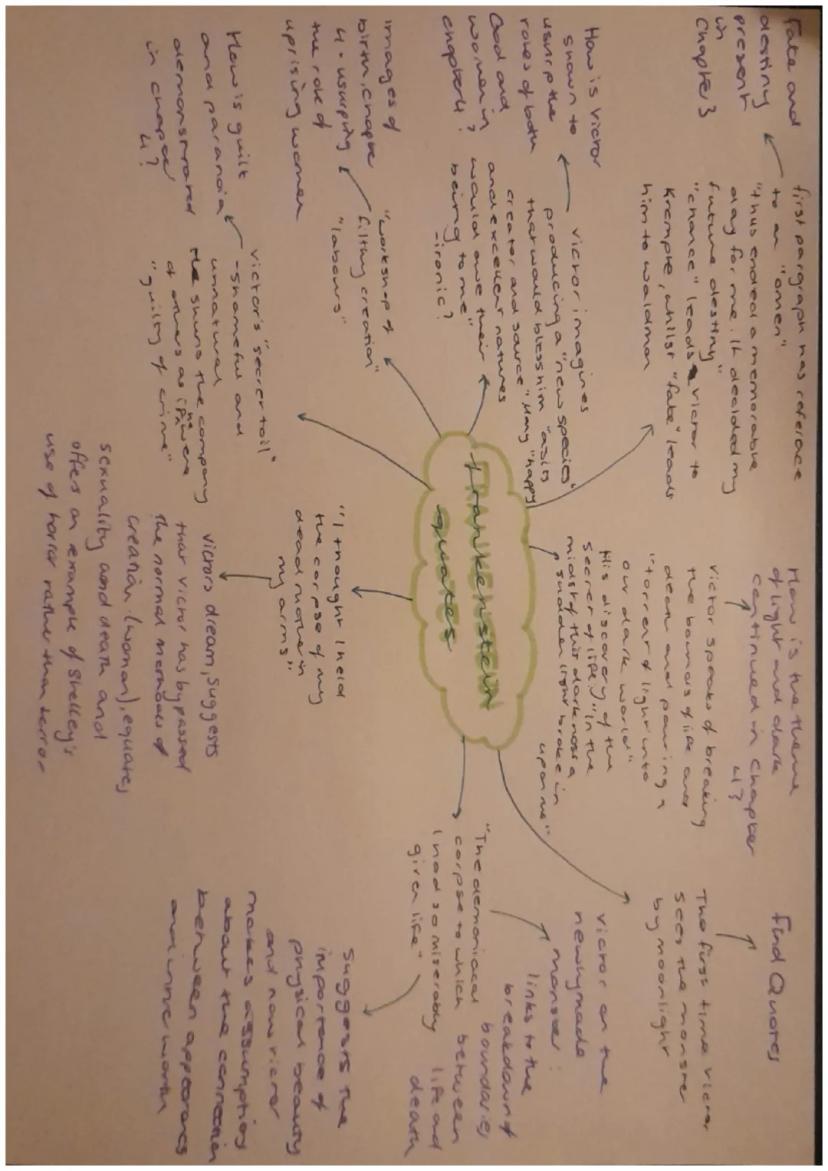 Fate and
destiny
present
in
Chapter 3
first paragraph has reference
to an "omen"
"thus ended a memorable
day for me. It decided my
future destiny"
"chance" leads Victor to
Krempe, whilst "fate" leads
him to waldman
How is the theme
of light and dark
continued in Chapter
4?
Victor speaks of breaking
the bounds of life and
death and pouring a
"torrent of light into
our dark world"
His discovery of the
secret of life, "in the
midst of this darkness a
sudden light broke in
upon me"
Find Quotes
The first time Victor
sees the monster
by moonlight
How is Victor
shown to
usurp the
roles of both
God and
women in
chapter 4?
Victor imagines
producing a "new species"
that would bless him "as its
creator and source" Many "happy
and excellent natures
would owe their
being to me"
-ironic?
FRANKENSTEIN
Frankenstein
quotes
victor on the
newly made
monster:
"The demoniacal
corpse to which
I had so miserably
given life"
links to the
breakdown of
boundaries
between
life and
death
Suggests the
importance of
physical beauty
and how victor
makes assumptions
about the connection
between appearances
and inner worth
images of
birth, chapter
4 - usurping
the role of
uprising women
"workshop of
filthy creation"
"labours"
"I thought I held
the corpse of my
dead mother in
my arms"
Victors dream, suggests
that victor has bypassed
the normal methods of
creation (woman), equates
sexuality and death and
offers an example of Shelley's
use of horror rather than terror
How is guilt
and paranoia
demonstrated
in chapter
4?
Victor's "secret toil"
- shameful and
unnatural
He shuns the company
of others as if he were
"guilty of crime"